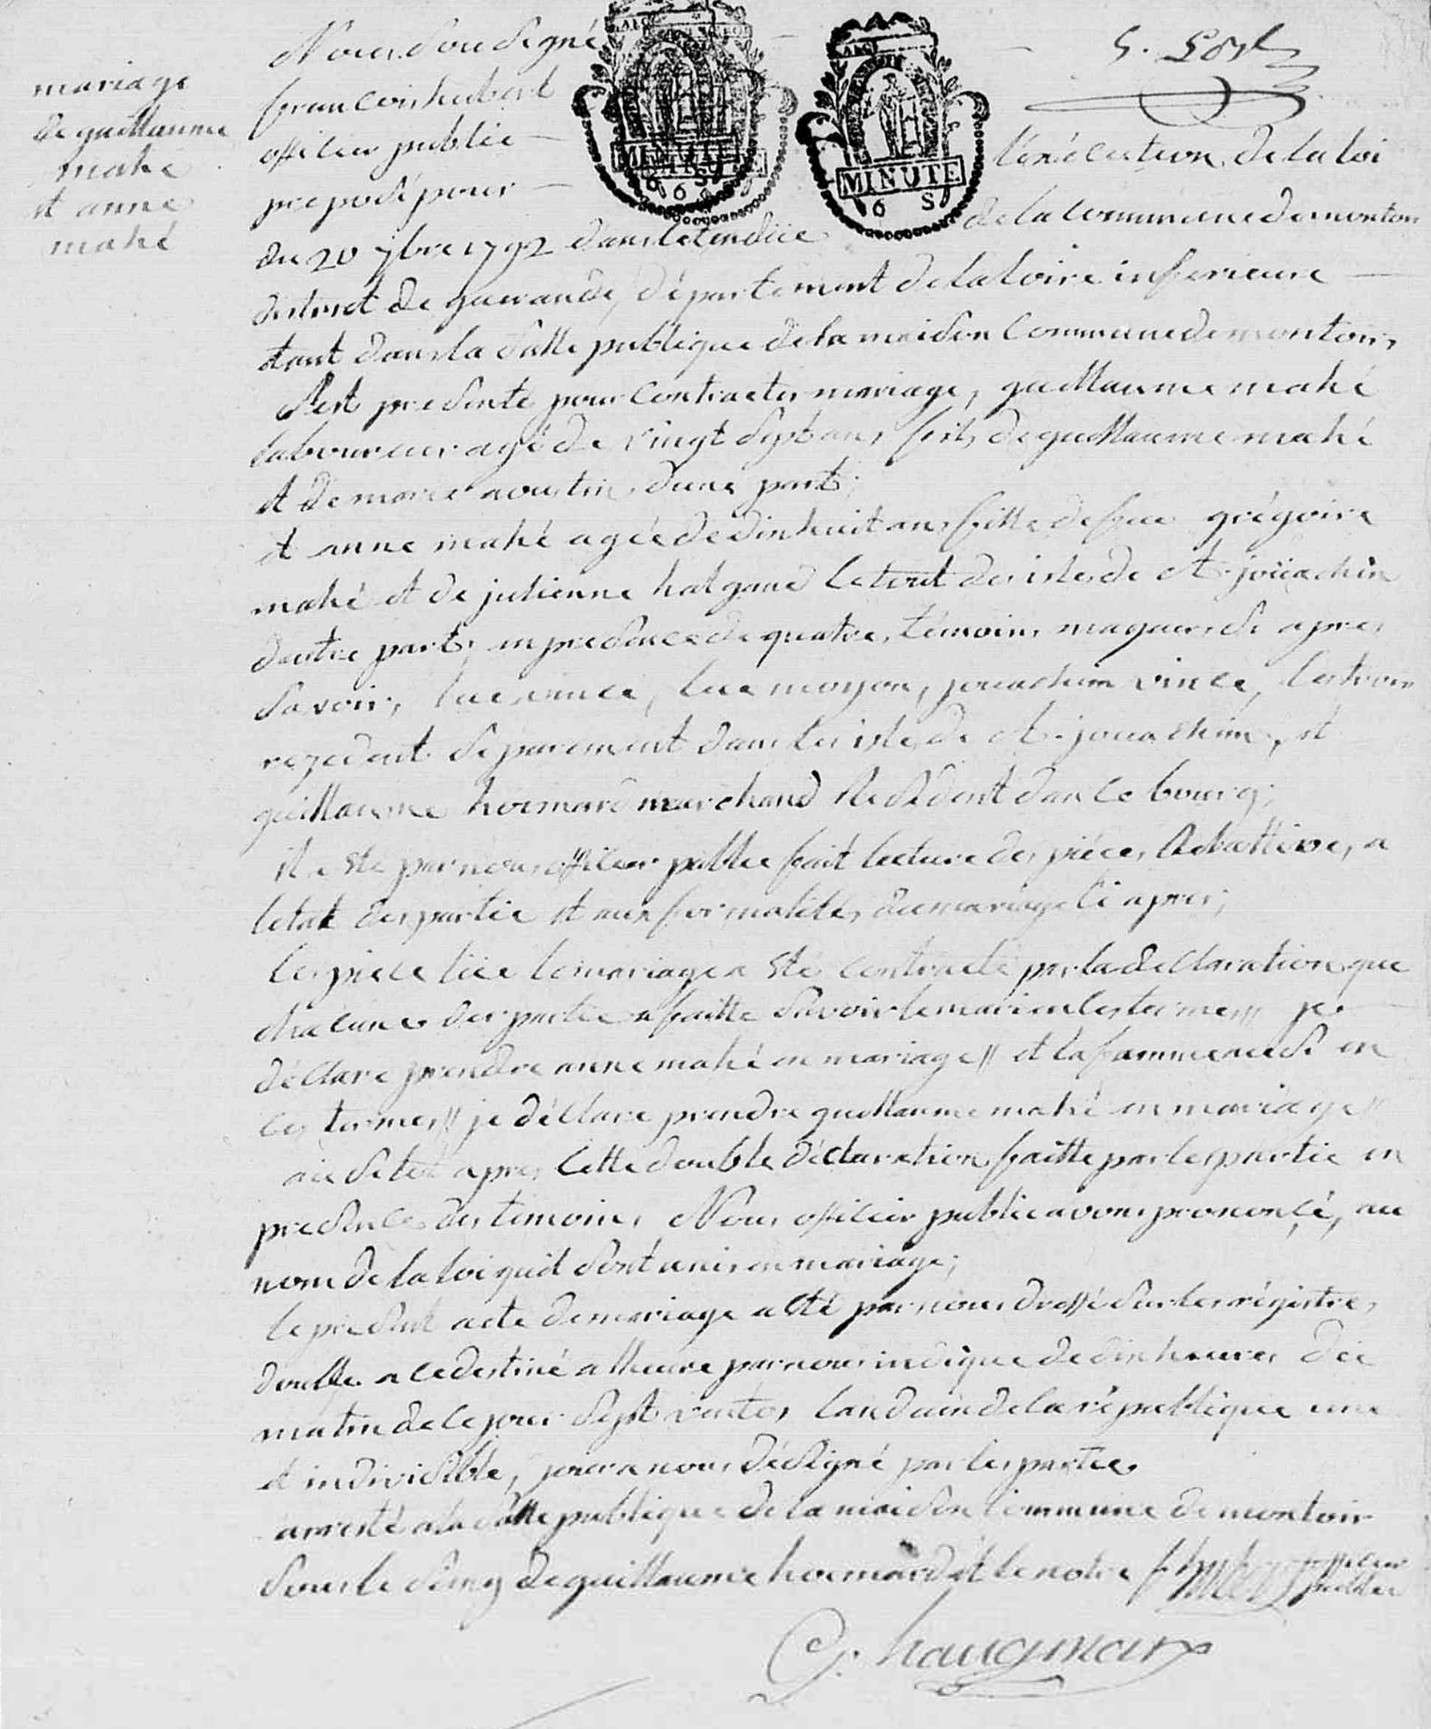 mariage
de guillaume
mahe
et anne
mahé
Nous Sousigné
francois hubert
officier public
preposé pour
MINUTE
6 S
l'exécution de la loi
du 20 7bre 1792 dans letendüe de la Commune de montoir
district de guerande, département de la loire inferieure
etant dans la Salle publique de la maison Commune de montoir,
S'est presenté pour Contracter mariage, guillaume mahé
laboureur agé de vingt Sept ans fils de guillaume mahé
et de marie aoustin, dune part;
et anne mahé agée de dixhuit ans fille de feue grégoire
mahé et de julienne halgand le tout des isles de St. joüachim
dautre part; en presence de quatre témoins maqueurs Si apres
Savoir, luc vince, luc moyon, jouachim vince, les trois
rezedent Separement dans les isles de St. jouachim, et
guillaume hoemard marchand Residant dans ce bourg;
il a été par nous officier public fait lecture des pièces Relattives, a
letat des partie et aux formalités du mariage Ci apres;
Les piece lüe le mariage a été Contracté par la déClaration que
chacune des partie a faitte Savoir le mari en ces termes // je
déClare prendre anne mahé en mariage // et la famme aussi en
ces termes // je déClare prendre guillaume mahé en mariage //
au Sitot apres Cette double déclaration faitte par les partie en
presence des temoins, Nous officier public avons prononcé, au
nom de la loi quil Sont unis en mariage;
le present acte de mariage a été par nous dressé Sur les régistre,
double a ce destiné a lheure par nous indique de dix heures du
matin de ce jour Sept vantos lan deux de la république une
et indivisible, jour a nous désigné par les partie
arresté a la Salle publique de la maison Commune de montoir
Sous le Seing de guillaume hoemard et le notre f hubert officier
public
G: haugmard